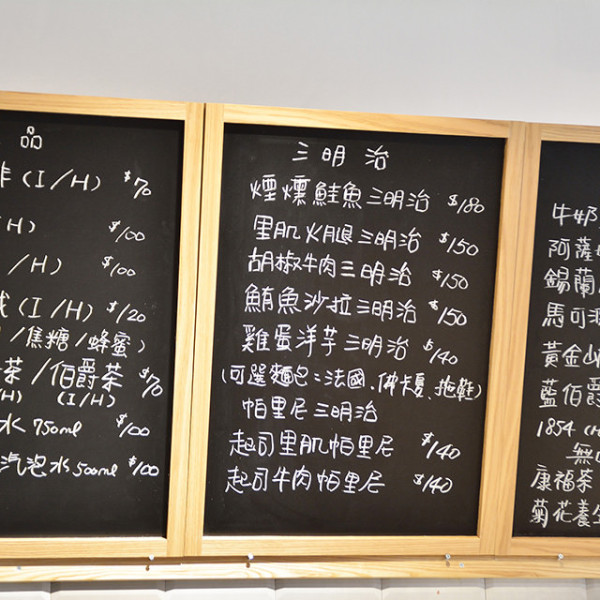 品
啡 (I/H) $70
H) $100
/H) $100
(I/H) $120
/焦糖/蜂蜜)
茶/伯爵茶 $70
(I/H)
水 750ml $100
汽泡水 500ml $100
三明治
煙燻鮭魚三明治 $180
里肌火腿三明治 $150
胡椒牛肉三明治 $150
鮪魚沙拉三明治 $150
雞蛋洋芋三明治 $140
(可選麵包：法國、佛卡夏、拖鞋)
帕里尼三明治
起司里肌帕里尼 $140
起司牛肉帕里尼 $140
牛奶
阿薩
錫蘭
馬可波
黃金山
藍伯爵
1854 CH
無
康福茶
菊花養生